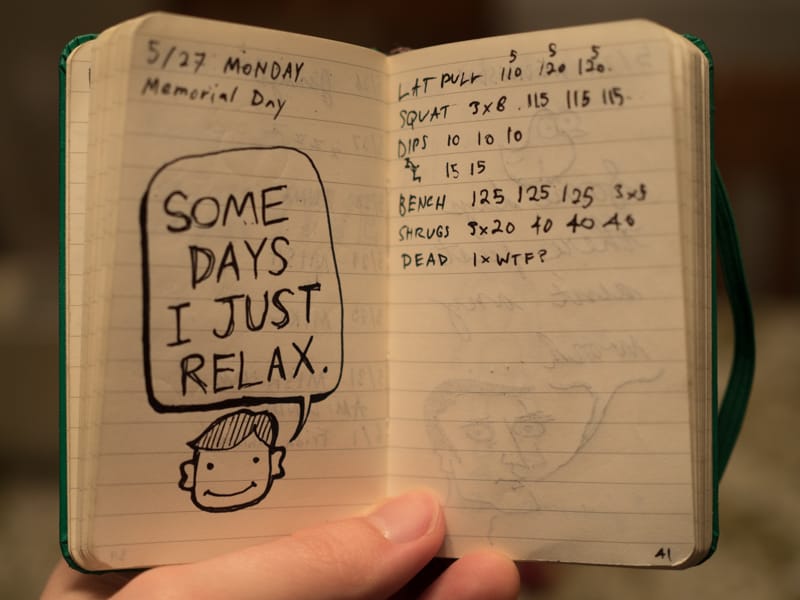 5/27 MONDAY
Memorial Day
SOME
DAYS
I JUST
RELAX.
5 5 5
LAT PULL 110 120 120.
SQUAT 3x8 115 115 115.
DIPS 10 10 10
15 15
BENCH 125 125 125 3x5
SHRUGS 3x20 40 40 40
DEAD 1x WTF?
41